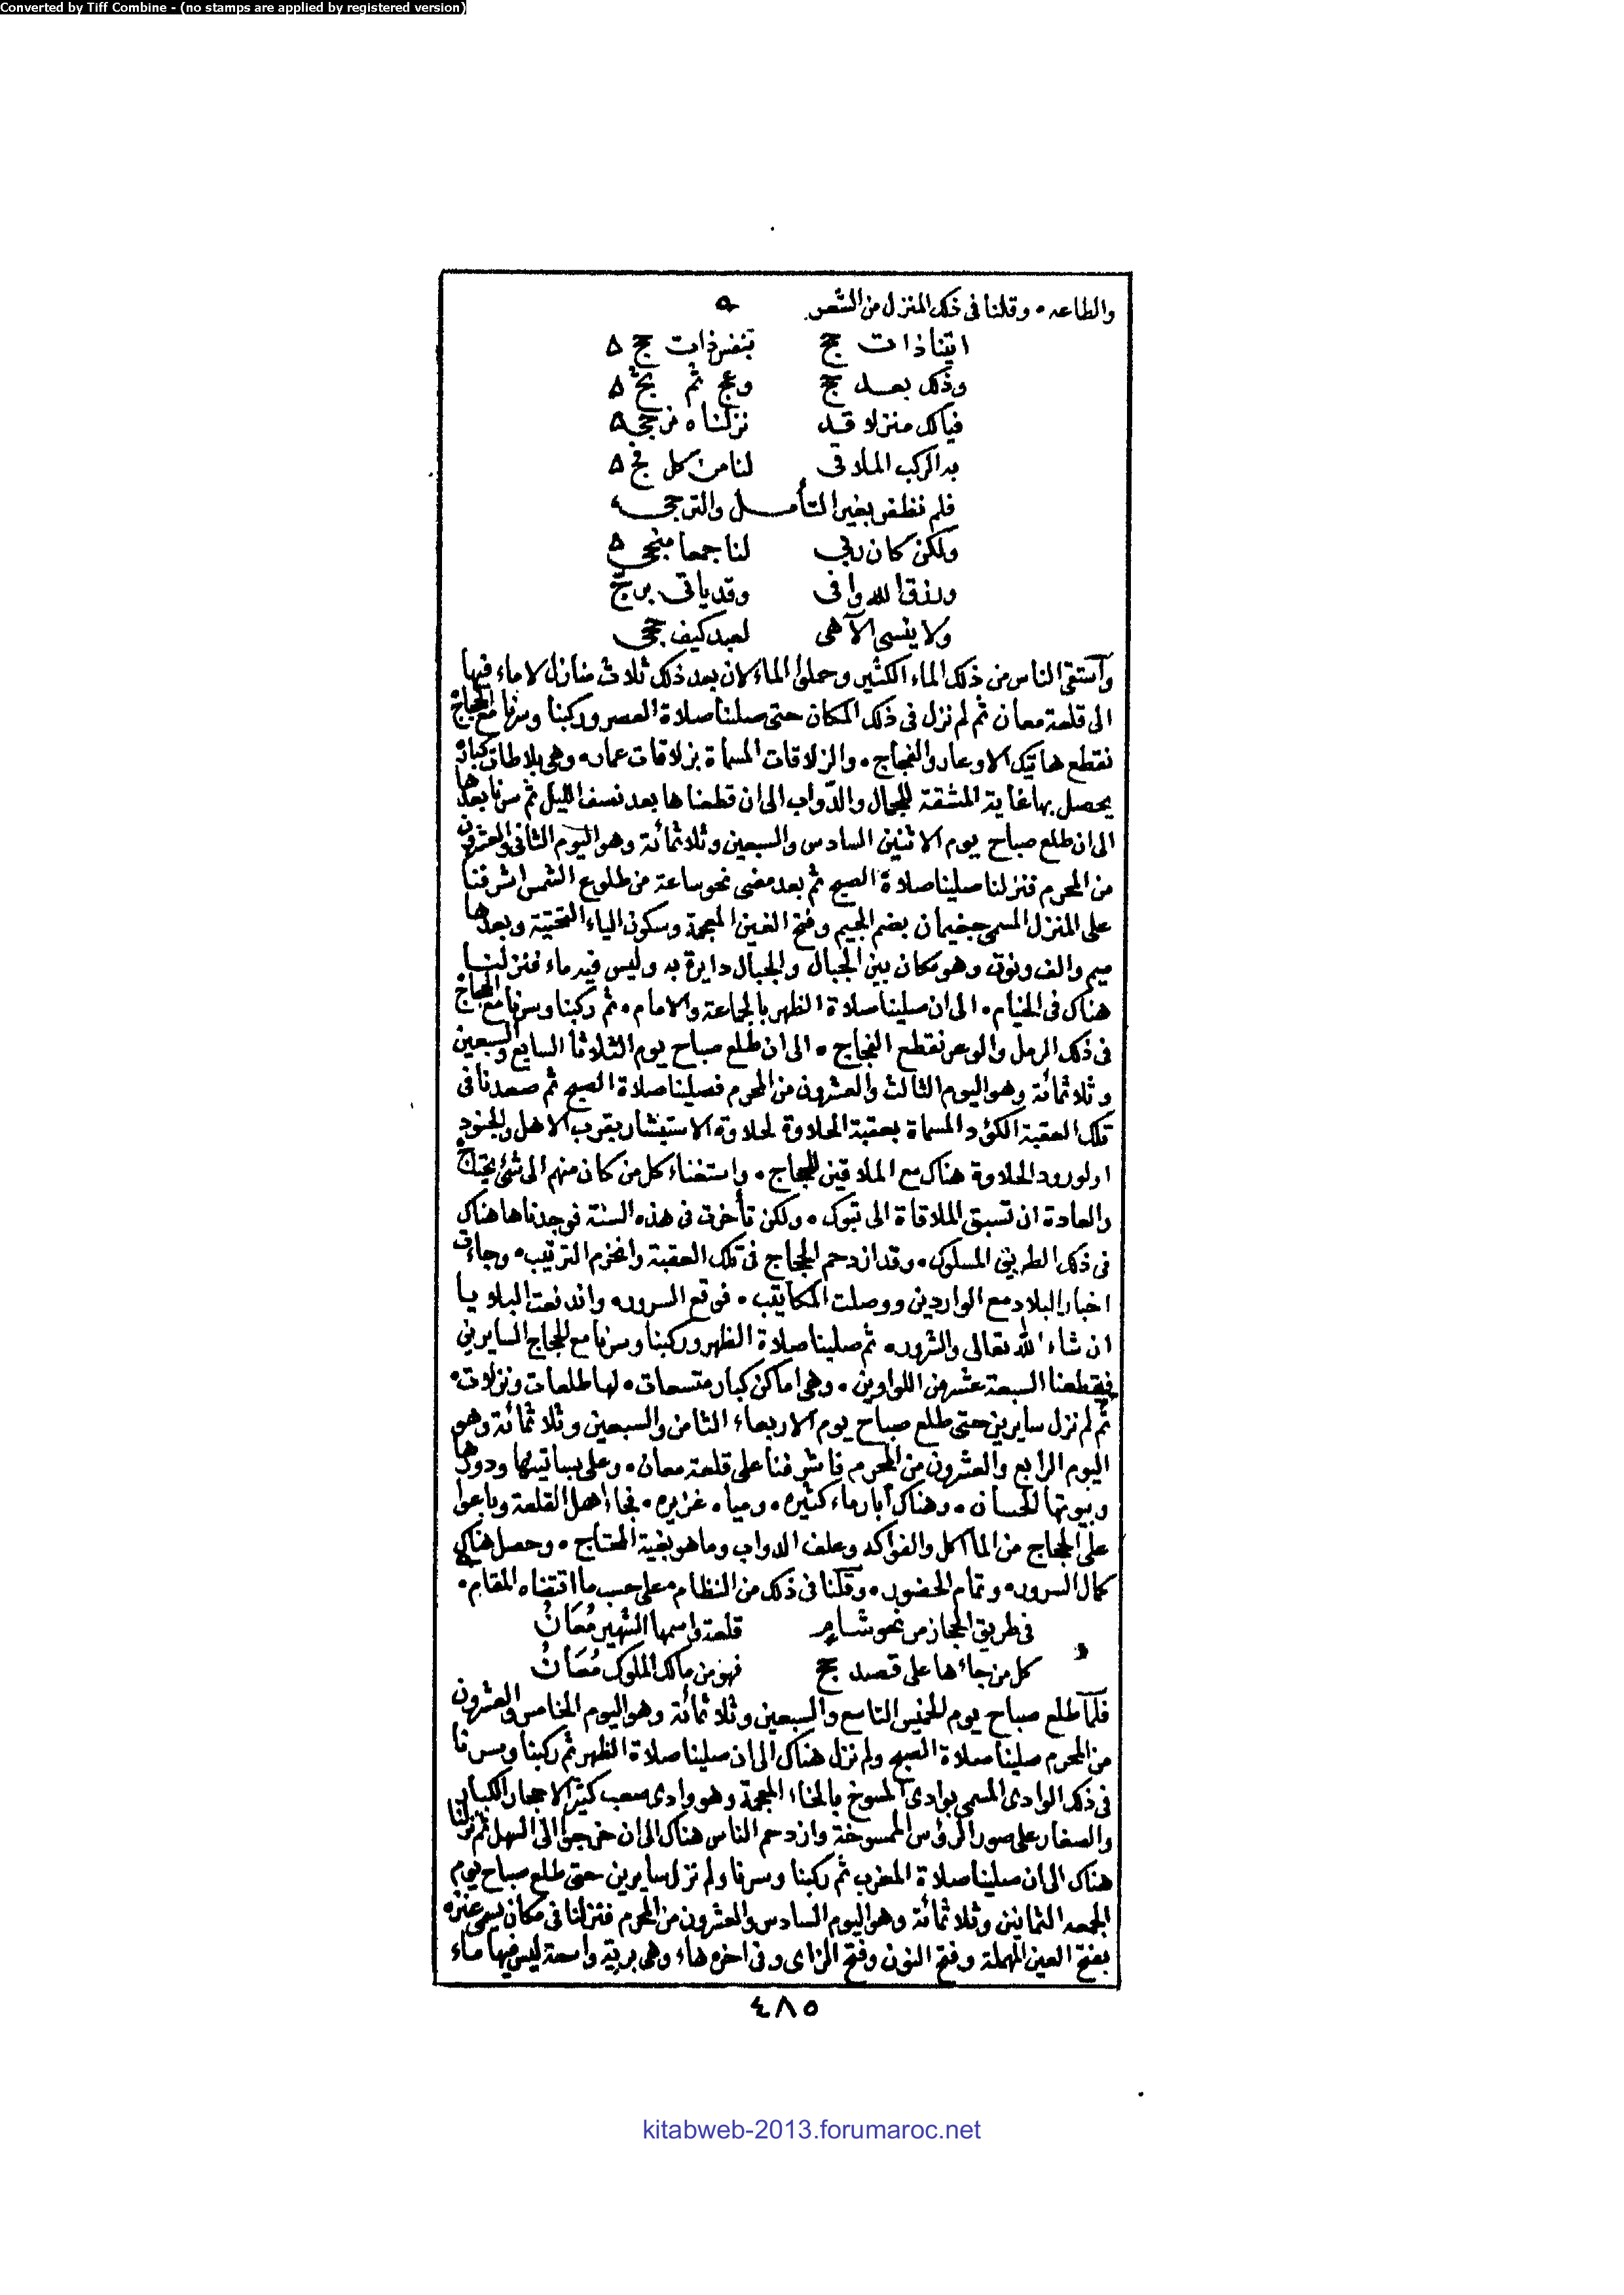 Converted by Tiff Combine - (no stamps are applied by registered version)
والطاعه • وقلنا فى ذلك المنزل من الشعر
اتينا ذات حج بنفس ذات حج
وذلك بعد حج وعج ثم بج
فيالك منزلا قد نزلناه
به الركب الملاقى لنا من كل فج
فلم نظفر بغير التأمل والترجى
ولكن كان ربى لنا جمعا منجى
ورزق الله وافى وقد ياتى
ولا ينسى الآهى لعبد كيف حجى
وآستقى الناس من ذلك الماء الكثير وحملوا الماء لان بعد ذلك ثلاث منازل لا ماء فيها
الى قلعة معان ثم لم نزل فى ذلك المكان حتى صلينا صلاة العصر وركبنا وسرنا مع الحجاج
نقطع هاتيك الاوعار والفجاج • والزلاقات المسماة بزلاقات عمار • وهى بلاطات كبار
يحصل بها غاية المشقة للجمال والدواب الى ان قطعناها بعد نصف الليل ثم سرنا بعدها
الى ان طلع صباح يوم الاثنين السادس والسبعين وثلاثمائة وهو اليوم الثانى والعشرون
من المحرم فنزلنا صلينا صلاة الصبح ثم بعد مضى نحو ساعة من طلوع الشمس اشرفنا
على المنزل المسمى جغيمان بضم الجيم وفتح الغين المعجمة وسكون الياء التحتية وبعدها
ميم والف ونون وهو مكان بين الجبال والجبال دايرة به وليس فيه ماء فنزلنا
هناك فى الخيام • الى ان صلينا صلاة الظهر بالجماعة والامام • ثم ركبنا وسرنا مع الحجاج
فى ذلك الرمل والوعر نقطع الفجاج • الى ان طلع صباح يوم الثلاثا السابع والسبعين
وثلاثمائة وهو اليوم الثالث والعشرون من المحرم فصلينا صلاة الصبح ثم صعدنا فى
تلك العقبة الكؤد المسماة بعقبة الحلاوة لحلاوة الاستبشار بقرب الاهل والجنود
او لورود الحلاوة هناك مع الملاقين للحجاج • واستغناء كل من كان منهم الى شئ يحتاج
والعادة ان تسبق الملاقاة الى تبوك • ولكن تأخرت فى هذه السنة فوجدناها هناك
فى ذلك الطريق المسلوك • وقد ازدحم الحجاج فى تلك العقبة وانخرم الترتيب • وجاءت
اخبار البلاد مع الواردين ووصلت المكاتيب • فوقع السرور • واندفعت البلايا
ان شاء الله تعالى والشرور • ثم صلينا صلاة الظهر وركبنا وسرنا مع الحجاج السايرين
فقطعنا السبعة عشر من اللواوين • وهى اماكن كبار متسعات • لها طلعات ونزلات •
ثم لم نزل سايرين حتى طلع صباح يوم الاربعاء الثامن والسبعين وثلاثمائة وهو
اليوم الرابع والعشرون من المحرم فاشرفنا على قلعة معان • وعلى بساتينها ودورها
وبيوتها الحسان • وهناك آبار ماء كثيره • ومياه غزيره • فجاء اهل القلعة وباعوا
على الحجاج من المآكل والفواكه وعلف الدواب وما هو بغية المحتاج • وحصل هناك
كمال السرور • وتمام الحضور • وقلنا فى ذلك من النظام • على حسب ما اقتضاه المقام •
فى طريق الحجاز من نحو شام قلعة واسمها الشهير مُعَانُ
كل من جاءها على قصد حج فهو من مالك الملوك مُعَانُ
فلما طلع صباح يوم الخميس التاسع والسبعين وثلاثمائة وهو اليوم الخامس والعشرون
من المحرم صلينا صلاة الصبح ولم نزل هناك الى ان صلينا صلاة الظهر ثم ركبنا وسرنا
فى ذلك الوادى المسمى بوادى المسوخ بالخاء المعجمة وهو وادى صعب كثير الاحجار الكبار
والصغار على صور الرؤس الممسوخة وازدحم الناس هناك الى ان خرجوا الى السهل ثم نزلنا
هناك الى ان صلينا صلاة المغرب ثم ركبنا وسرنا ولم نزل سايرين حتى طلع صباح يوم
الجمعه الثمانين وثلاثمائة وهو اليوم السادس والعشرون من المحرم فنزلنا فى مكان يسمى عنزه
بفتح العين المهملة وفتح النون وفتح الزاى وفى اخره هاء وهى برية واسعة ليس فيها ماء
٤٨٥
kitabweb-2013.forumaroc.net